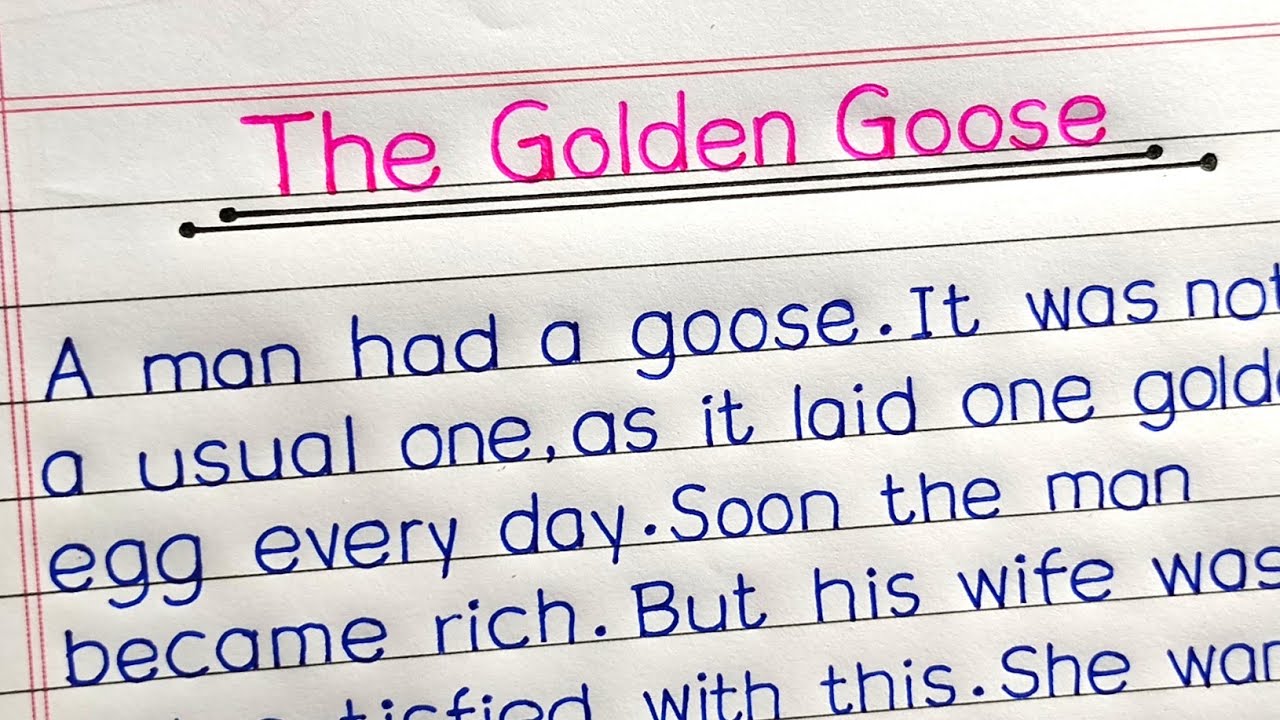 The Golden Goose
A man had a goose. It was not
a usual one, as it laid one gold
egg every day. Soon the man
became rich. But his wife was
with this. She